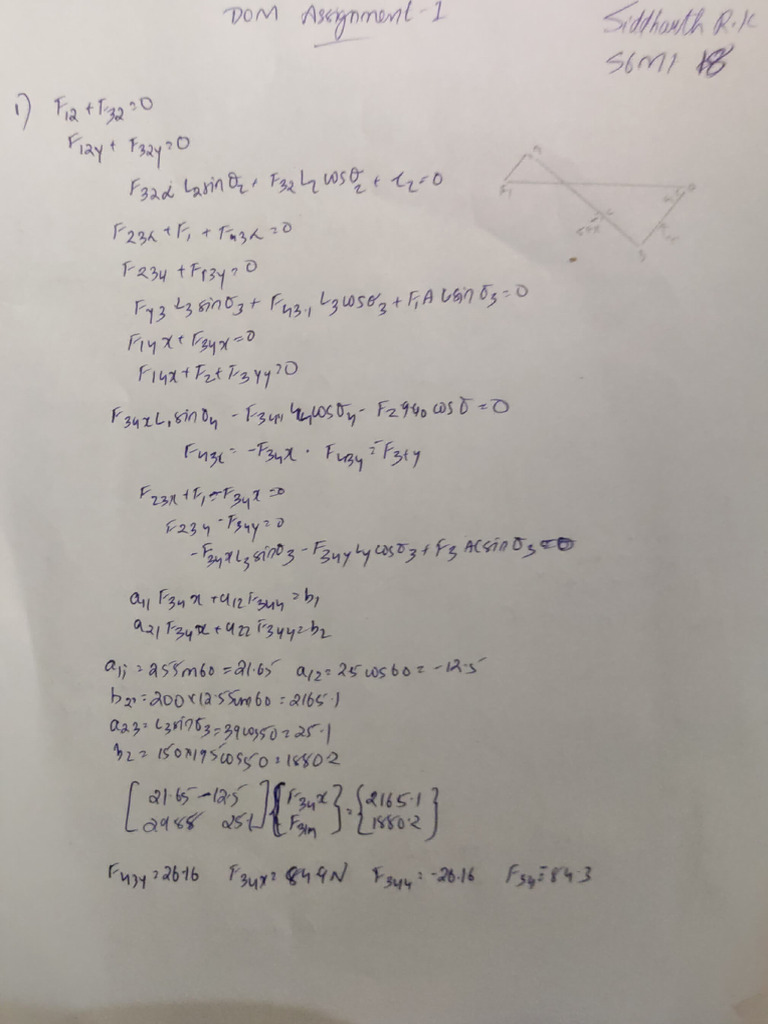 DOM Assignment-1
Siddharth R.K
S6M1 18
1) F12 + F32 = 0
F12y + F32y = 0
F32x L2 sinθ2 + F32 L2 cosθ2 + τ2 = 0
F23x + F1 + F43x =0
F23y + F43y = 0
F43 L3 sinθ3 + F43 L3 cosθ3 + F1 AC sinθ3 = 0
F14x + F34x = 0
F14x + F2 + F34y = 0
F34x L4 sinθ4 - F34y L4 cosθ4 - F2 cosθ = 0
F43x = -F34x . F43y = F34y
F23x + F1 - F34x = 0
F23y - F34y = 0
-F34x L3 sinθ3 - F34y L4 cosθ3 + F3 AC sinθ3 = 0
a11 F34x + a12 F34y = b1
a21 F34x + a22 F34y = b2
a11 = 25 sin60 = 21.65 a12 = 25 cos60 = -12.5
b2 = 200 × 12.5 sin60 = 2165.1
a23 = L3 sinθ3 = 39 cos50 = 25.1
b2 = 150 × 195 cos50 = 1880.2
[21.65 -12.5] {F34x} = {2165.1}
[29.88 25.1] {F34y} {1880.2}
F43y = 26.16 F34x = 84.4N F34y = -26.16 F34 = 84.3